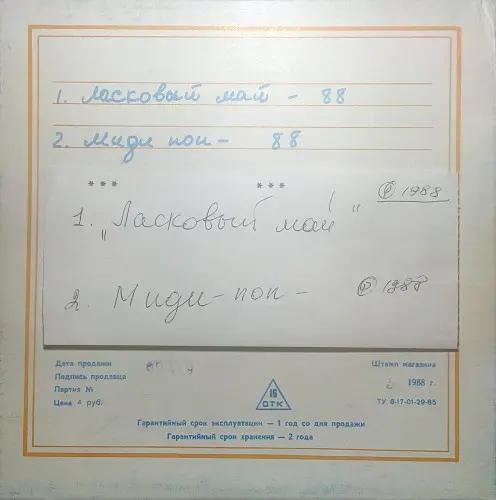 1. Ласковый май - 88
2. Миди поп - 88
*** ***
℗ 1988
1. „Ласковый май"
2. Миди-поп - ℗ 1988
Дата продажи
Подпись продавца
Партия №
Цена 4 руб.
Штамп магазина
1988 г.
ТУ 8-17-01-29-85
16
ОТК
Гарантийный срок эксплуатации — 1 год со дня продажи
Гарантийный срок хранения — 2 года